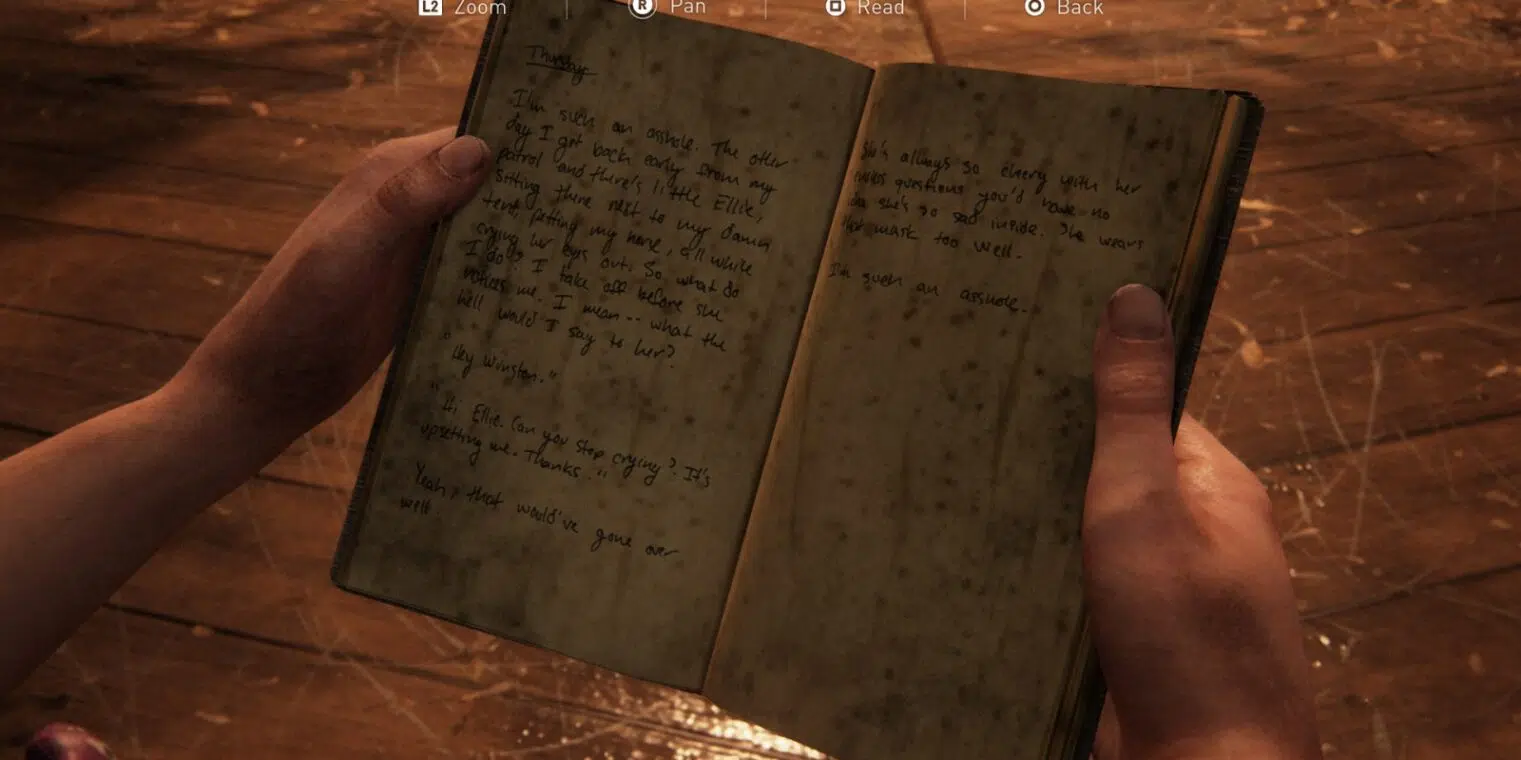 L2 Zoom R Pan Read Back
Thursday
I'm such an asshole. The other
day I get back early from my
patrol and there's little Ellie,
sitting there next to my damn
tent, petting my horse, all while
crying her eyes out. So what do
I do? I take off before she
notices me. I mean -- what the
hell would I say to her?
"Hey Winston."
"Hi Ellie. Can you stop crying? It's
upsetting me. Thanks."
Yeah, that would've gone over
well.
She's always so cheery with her
questions you'd have no
idea she's so sad inside. She wears
that mask too well.
I'm such an asshole.